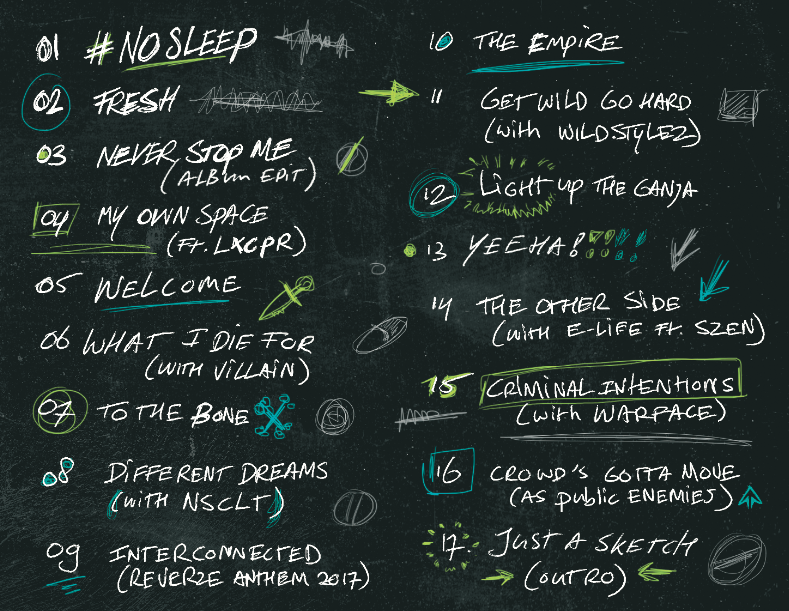 01 #NO SLEEP
02 FRESH
03 NEVER STOP ME
(ALBUM EDIT)
04 MY OWN SPACE
(FT. LXCPR)
05 WELCOME
06 WHAT I DIE FOR
(WITH VILLAIN)
07 TO THE BONE
08 DIFFERENT DREAMS
(WITH NSCLT)
09 INTERCONNECTED
(REVERZE ANTHEM 2017)
10 THE EMPIRE
11 GET WILD GO HARD
(with WILDSTYLEZ)
12 Light up THE GANJA
13 YEEHA! !!!!
14 THE OTHER SIDE
(WITH E-LIFE FT. SZEN)
15 CRIMINAL INTENTIONS
(with WARFACE)
16 CROWD'S GOTTA MOVE
(AS public ENEMIES)
17. JUST A SKETCH
(OUTRO)